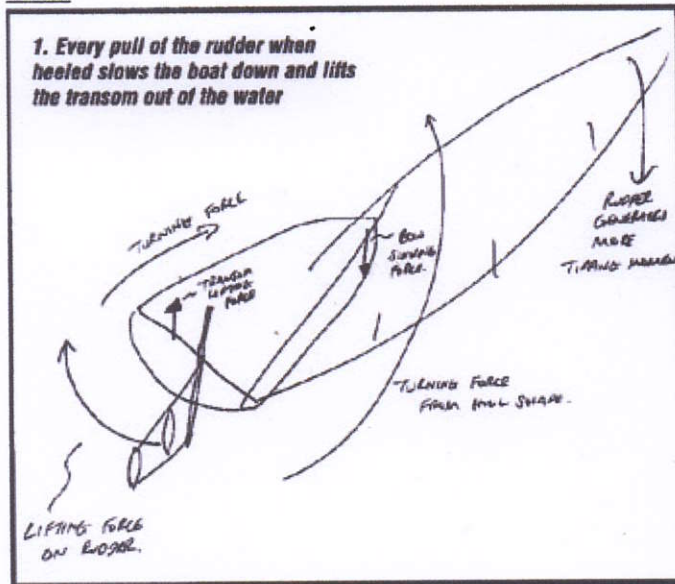 1. Every pull of the rudder when
heeled slows the boat down and lifts
the transom out of the water
TURNING FORCE
TRANSOM
LIFTING
FORCE
BOW
FORCE.
RUDDER
GENERATES
MORE
TIPPING MOMENT
TURNING FORCE
FROM HULL SHAPE.
LIFTING FORCE
ON RUDDER.